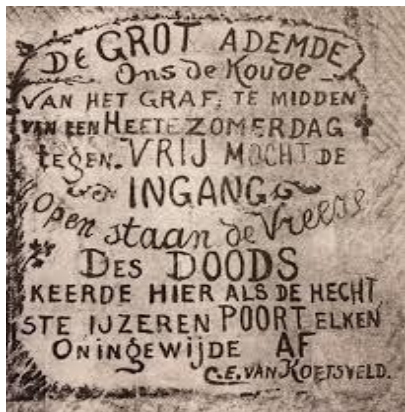 DE GROT ADEMDE
Ons de Koude
VAN HET GRAF, TE MIDDEN
VAN EEN HEETE ZOMERDAG
tEGEN. VRIJ MOCHT DE
INGANG
Open staan de Vreeze
DES DOODS
KEERDE HIER ALS DE HECHT
STE IJZEREN POORT ELKEN
ONINGEWIJDE AF
C.E. VAN KOETSVELD.